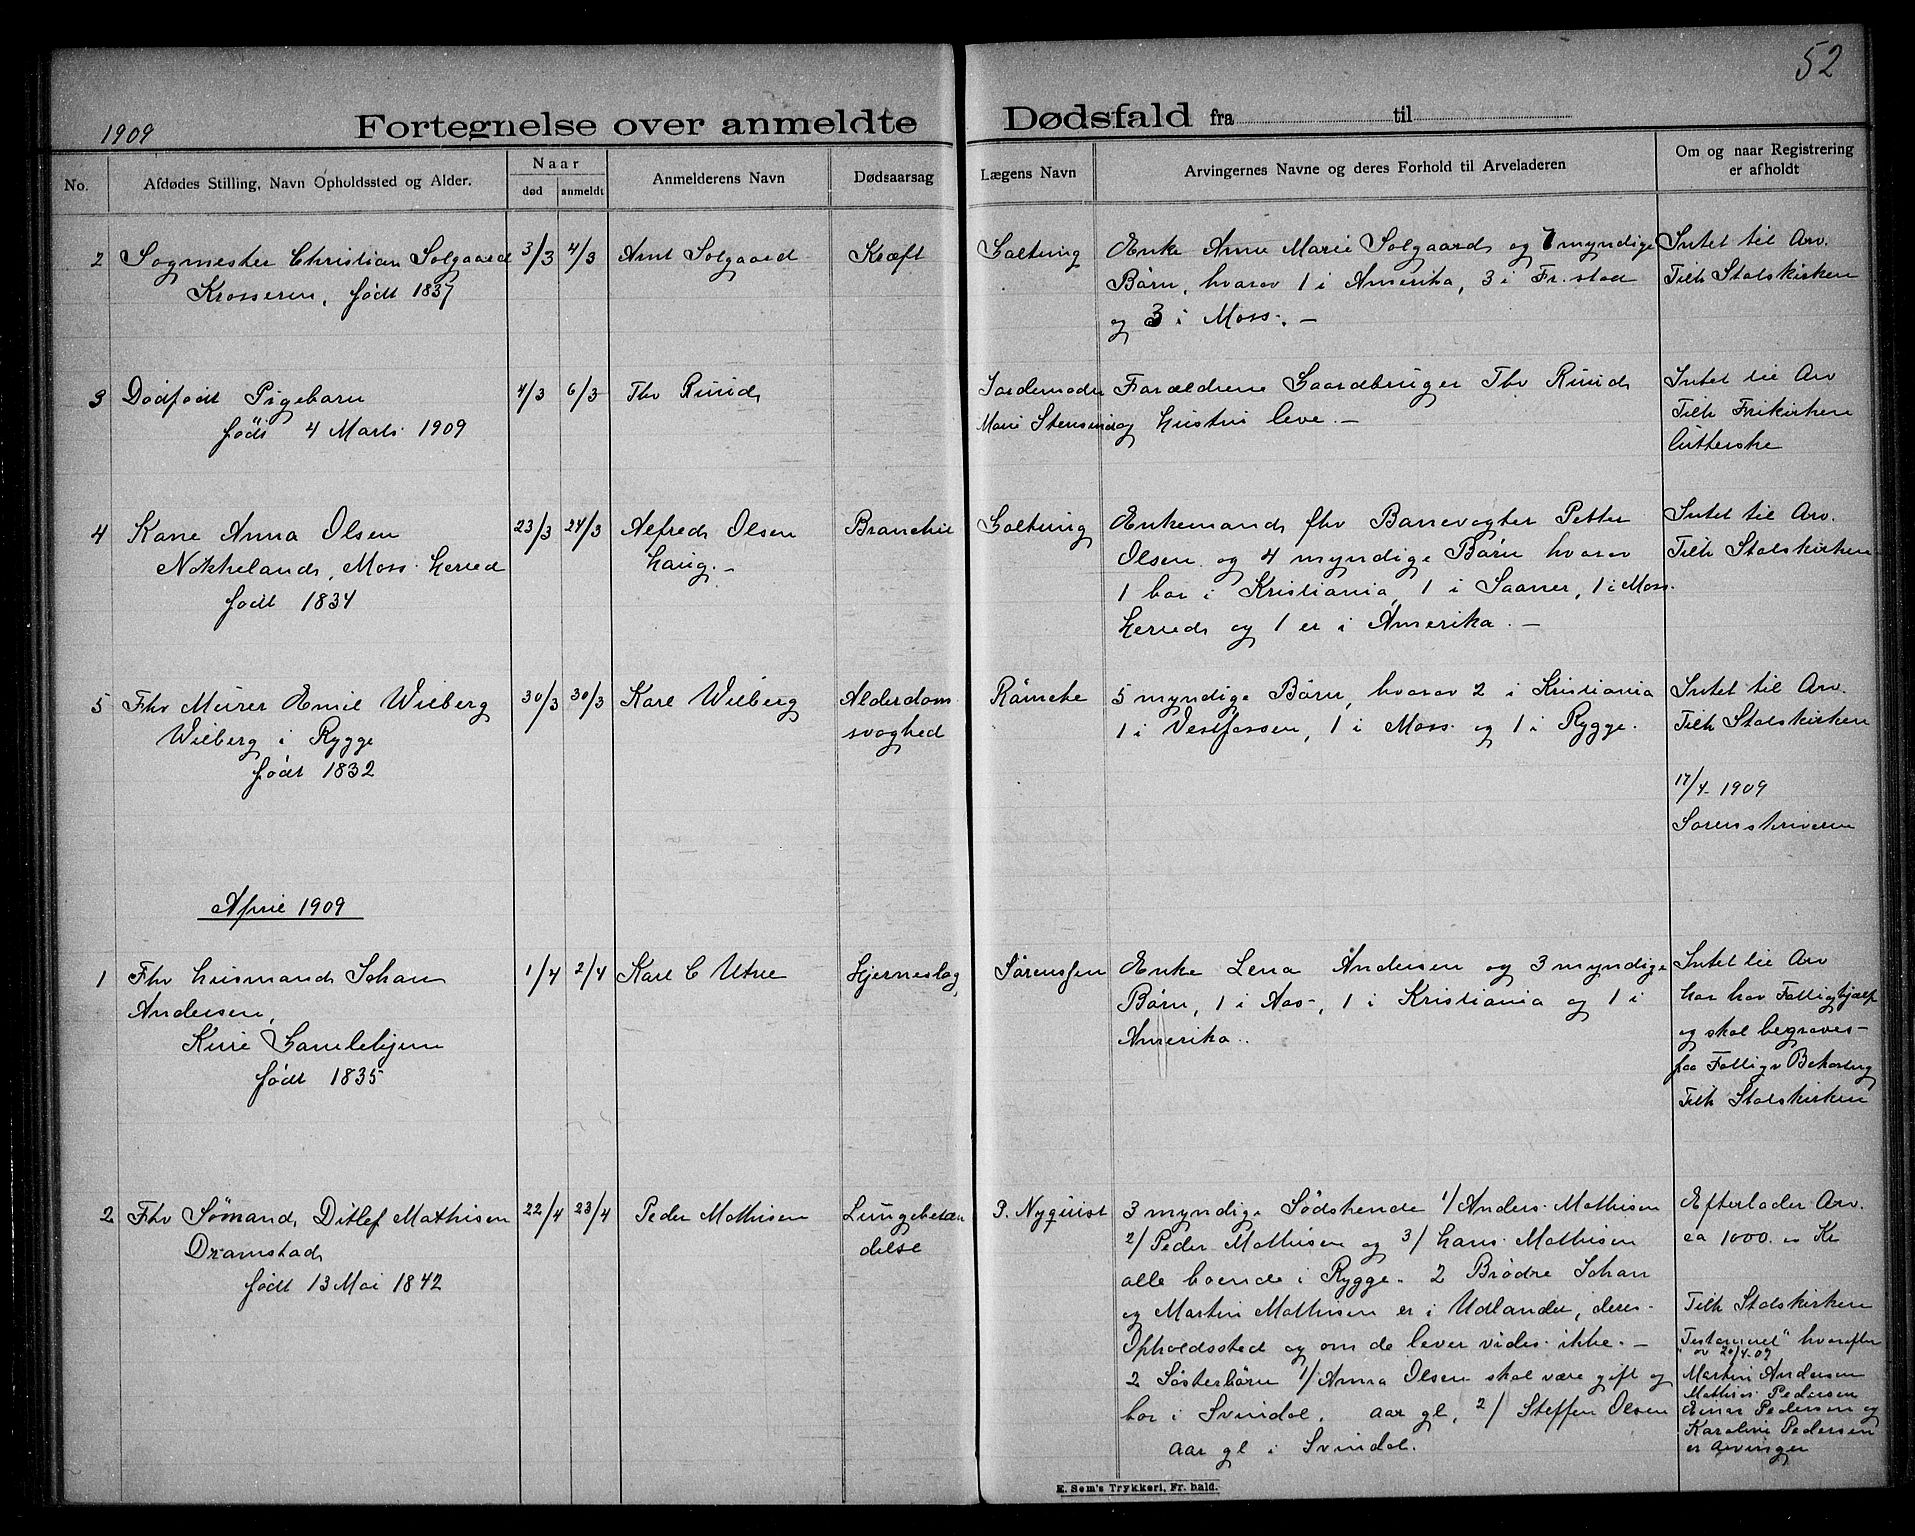 52
1909
Fortegnelse over anmeldte Dødsfald fra til
No.
Afdødes Stilling, Navn Opholdssted og Alder.
Naar
død
anmeldt
Anmelderens Navn
Dødsaarsag
Lægens Navn
Arvingernes Navne og deres Forhold til Arveladeren
Om og naar Registrering
er afholdt
2
Sagmester Christian Solgaard
Krosseren, født 1837
3/3
4/3
Arnt Solgaard
Kræft
Galtung
Enke Anne Marie Solgaard og 7 myndige
Børn, hvorav 1 i Amerika, 3 i Fr.stad
og 3 i Moss. —
Intet til Arv.
Tilh Statskirken
3
Dødfødt Pigebarn
født 4 Marts 1909
4/3
6/3
Thv Ruud
Jordemoder
Marie Stensrud
Forældrene Gaardbruger Thv Ruud
og Hustru leve. —
Intet til Arv
Tilh Frikirken
Lutherske
4
Kone Anna Olsen
Nokkeland, Moss Herred
født 1834
23/3
24/3
Alfred Olsen
Haug. —
Bronchit
Galtung
Enkemand fhv Banevogter Petter
Olsen og 4 myndige Børn hvorav
1 bor i Kristiania, 1 i Saaner, 1 i Moss
Herred og 1 er i Amerika. —
Intet til Arv.
Tilh Statskirken
5
Fhv Murer Emil Wilberg
Wilberg i Rygge
født 1832
30/3
30/3
Karl Wilberg
Alderdoms
svaghed
Rømcke
5 myndige Børn, hvorav 2 i Kristiania
1 i Vestfossen, 1 i Moss og 1 i Rygge.
Intet til Arv.
Tilh Statskirken
17/4 1909
Sorenskriveren
April 1909
1
Fhv Husmand Johan
Andersen,
Kure Gamlehjem
født 1835
1/4
2/4
Karl C Utne
Hjerneslag
Sørenssen
Enke Lena Andersen og 3 myndige
Børn, 1 i Aas, 1 i Kristiania og 1 i
Amerika.
Intet til Arv
har hav Fattighjælp
og skal begraves
paa Fattigv Bekostng
Tilh Statskirken
2
Fhv Sømand Ditlef Mathisen
Dramstad
født 13 Mai 1842
22/4
23/4
Peder Mathisen
Lungebetæn
delse
P. Nyquist
3 myndige Södskende 1/ Anders Mathisen
2/ Peder Mathisen og 3/ Hans Mathisen
alle boende i Rygge. 2 Brødre Johan
og Martin Mathisen er i Udlandet, deres
Opholdssted og om de lever vides ikke. —
2 Søsterbörn 1/ Anna Olsen skal være gift og
bor i Svindal. aar gl, 2/ Steffen Olsen
aar gl i Svindal.
Efterlader Arv.
ca 1000 Kr
Tilh Statskirken
Testament hvorefter
av 20/4-09
Martin Andersen
Mathis Pedersen
Einar Pedersen og
Karoline Pedersen
er Arvinger
E. Sem's Trykkeri, Fr. hald.